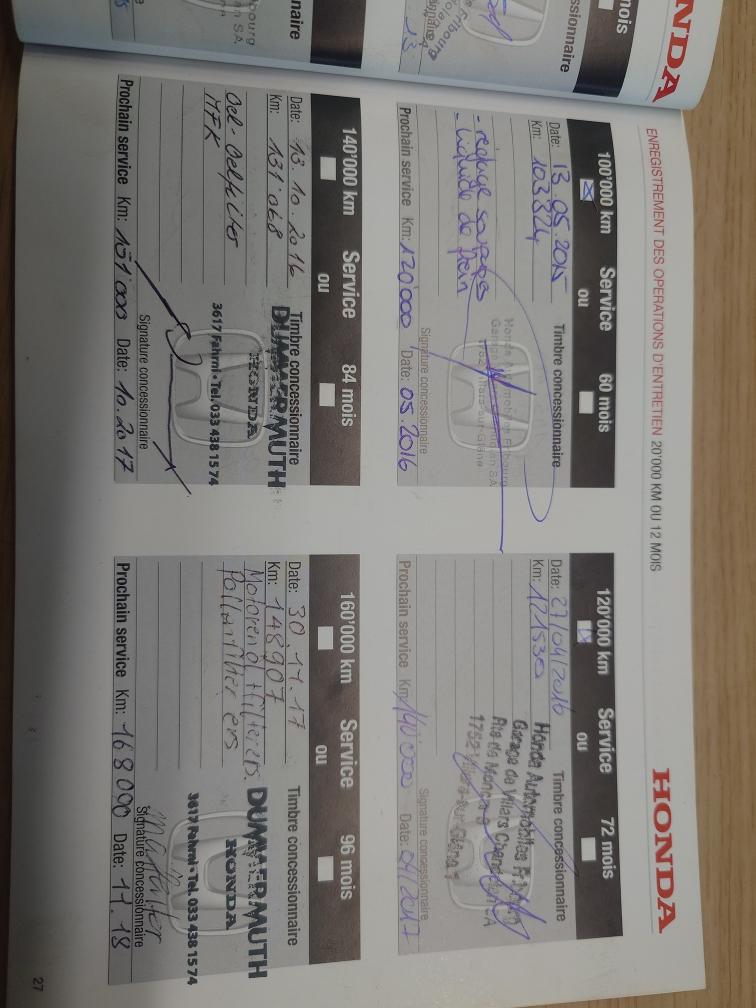 HONDA
ENREGISTREMENT DES OPERATIONS D'ENTRETIEN 20'000 KM OU 12 MOIS
HONDA
100'000 km Service 60 mois
ou
Date: 13.05.2015 Timbre concessionnaire
Km: 103324
- liquide de frein
Signature concessionnaire
Prochain service Km: 120'000 Date: 05.2016
120'000 km Service 72 mois
ou
Date: 27/04/2016 Timbre concessionnaire
Km: 121530
Honda Automobiles Fribourg
Garage de Villars
Signature concessionnaire
Prochain service Km: 140'000 Date: 04/2017
140'000 km Service 84 mois
ou
Date: 13.10.2016 Timbre concessionnaire
Km: 131'068
DUMMERMUTH
HONDA
3617 Fahrni • Tel. 033 438 15 74
Oel-Oelfilter
MFK
Signature concessionnaire
Prochain service Km: 151'000 Date: 10.2017
160'000 km Service 96 mois
ou
Date: 30.11.17 Timbre concessionnaire
Km: 148907
DUMMERMUTH
HONDA
3617 Fahrni • Tel. 033 438 15 74
Motorenöl + filter ers.
Pollenfilter ers
Signature concessionnaire
Prochain service Km: 168000 Date: 11.18
27